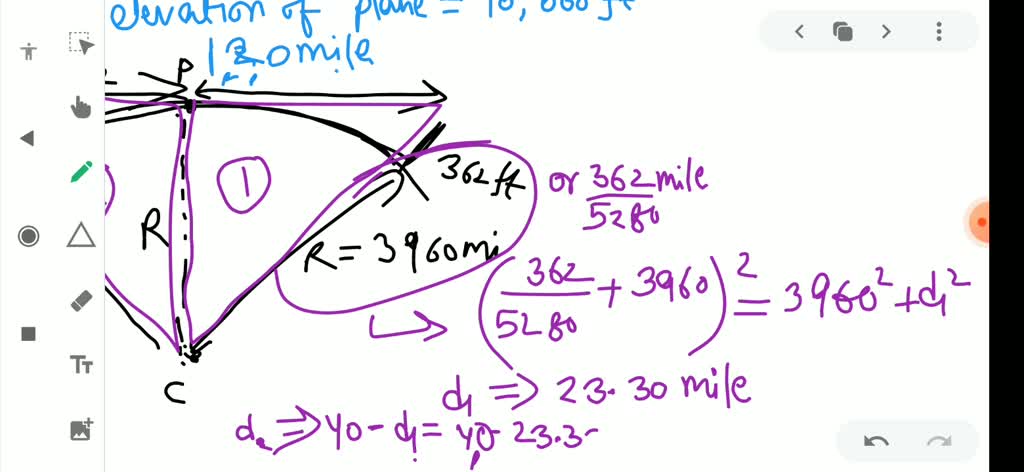 elevation of plane = 10,000ft
120mile
P
1
362ft
or 362 mile
5280
R
R = 3960mi
(362/5280 + 3960)² = 3960² + d₁²
C
d₁ ⇒ 23.30 mile
d₂ ⇒ 40 - d₁ = 40 - 23.3
Tт